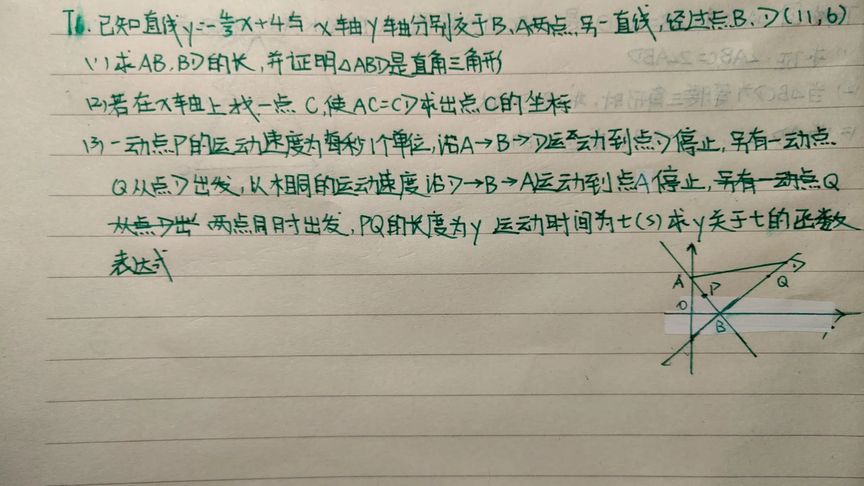 T6.已知直线y=-4/3x+4与 x轴y轴分别交于B、A两点,另一直线,经过点B、D(11,6)
(1)求AB、BD的长,并证明△ABD是直角三角形
(2)若在x轴上找一点C,使AC=CD求出点C的坐标
(3)一动点P的运动速度为每秒1个单位,沿A→B→D运动到点D停止,另有一动点
Q从点D出发,以相同的运动速度沿D→B→A运动到点A停止,另有一动点Q
从点D出 两点同时出发,PQ的长度为y 运动时间为t(s)求y关于t的函数
表达式
A
P
D
Q
O
B